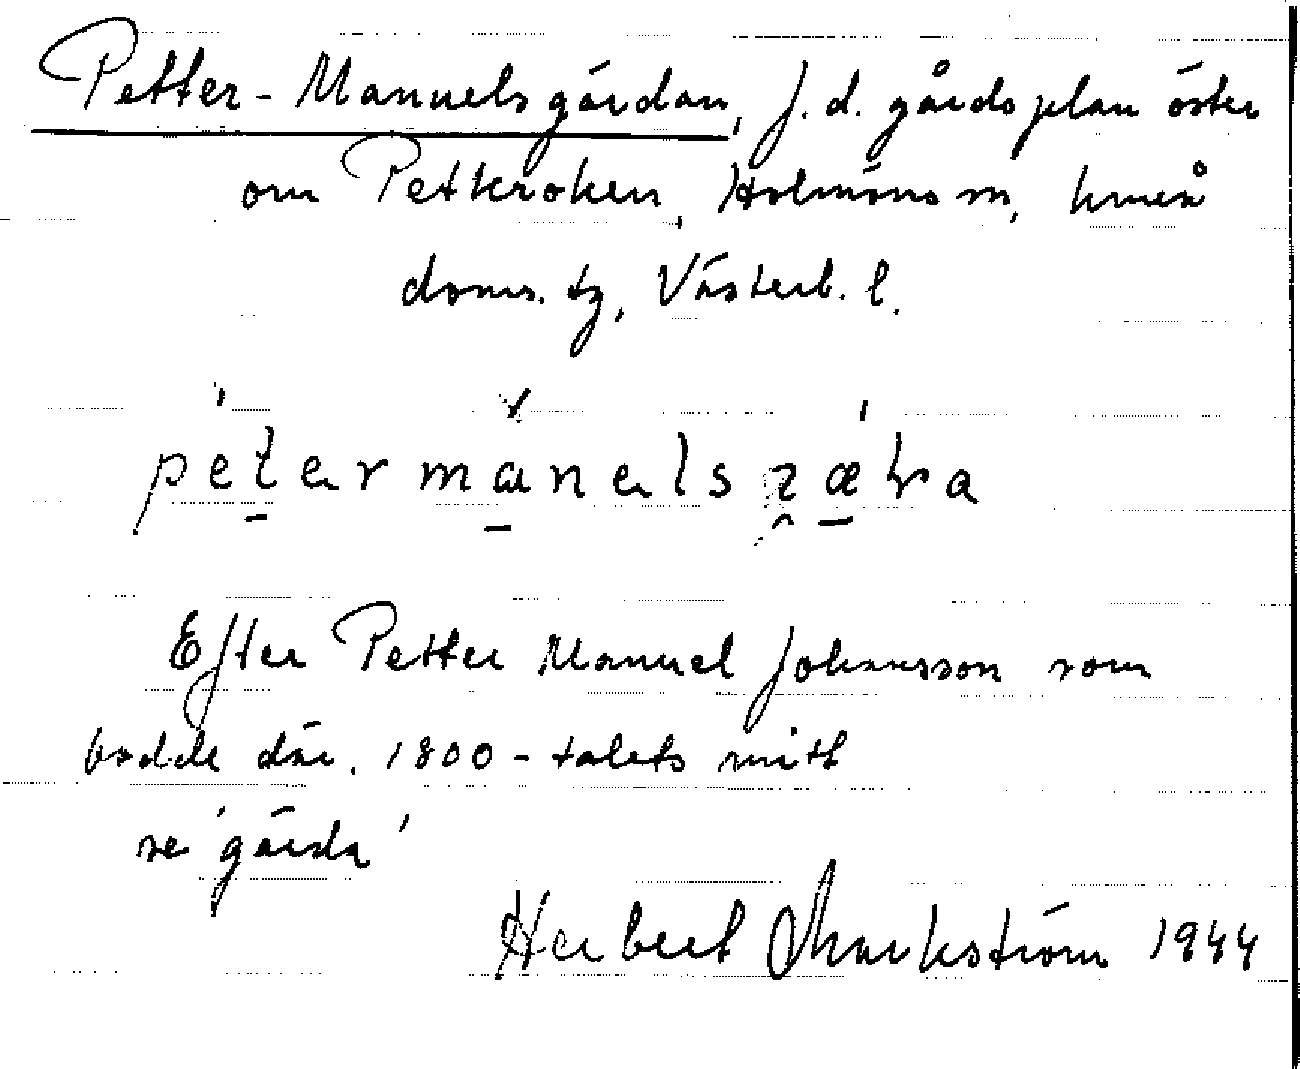 Petter-Manuelsgärdan, f.d. gårdsplan öster
om Petkroken, Holmöns sn, Umeå
doms. tg, Västerb. l.
petermanelsʒæɽa
Efter Petter Manuel Johansson som
bodde där. 1800-talets mitt
se 'gärda'
Herbert Markström 1944